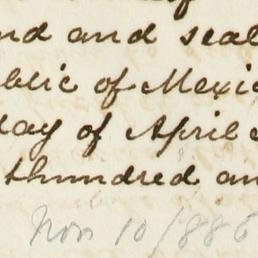 nd and seal
blic of Mexic
day of April
thundred an
Nov 10/886